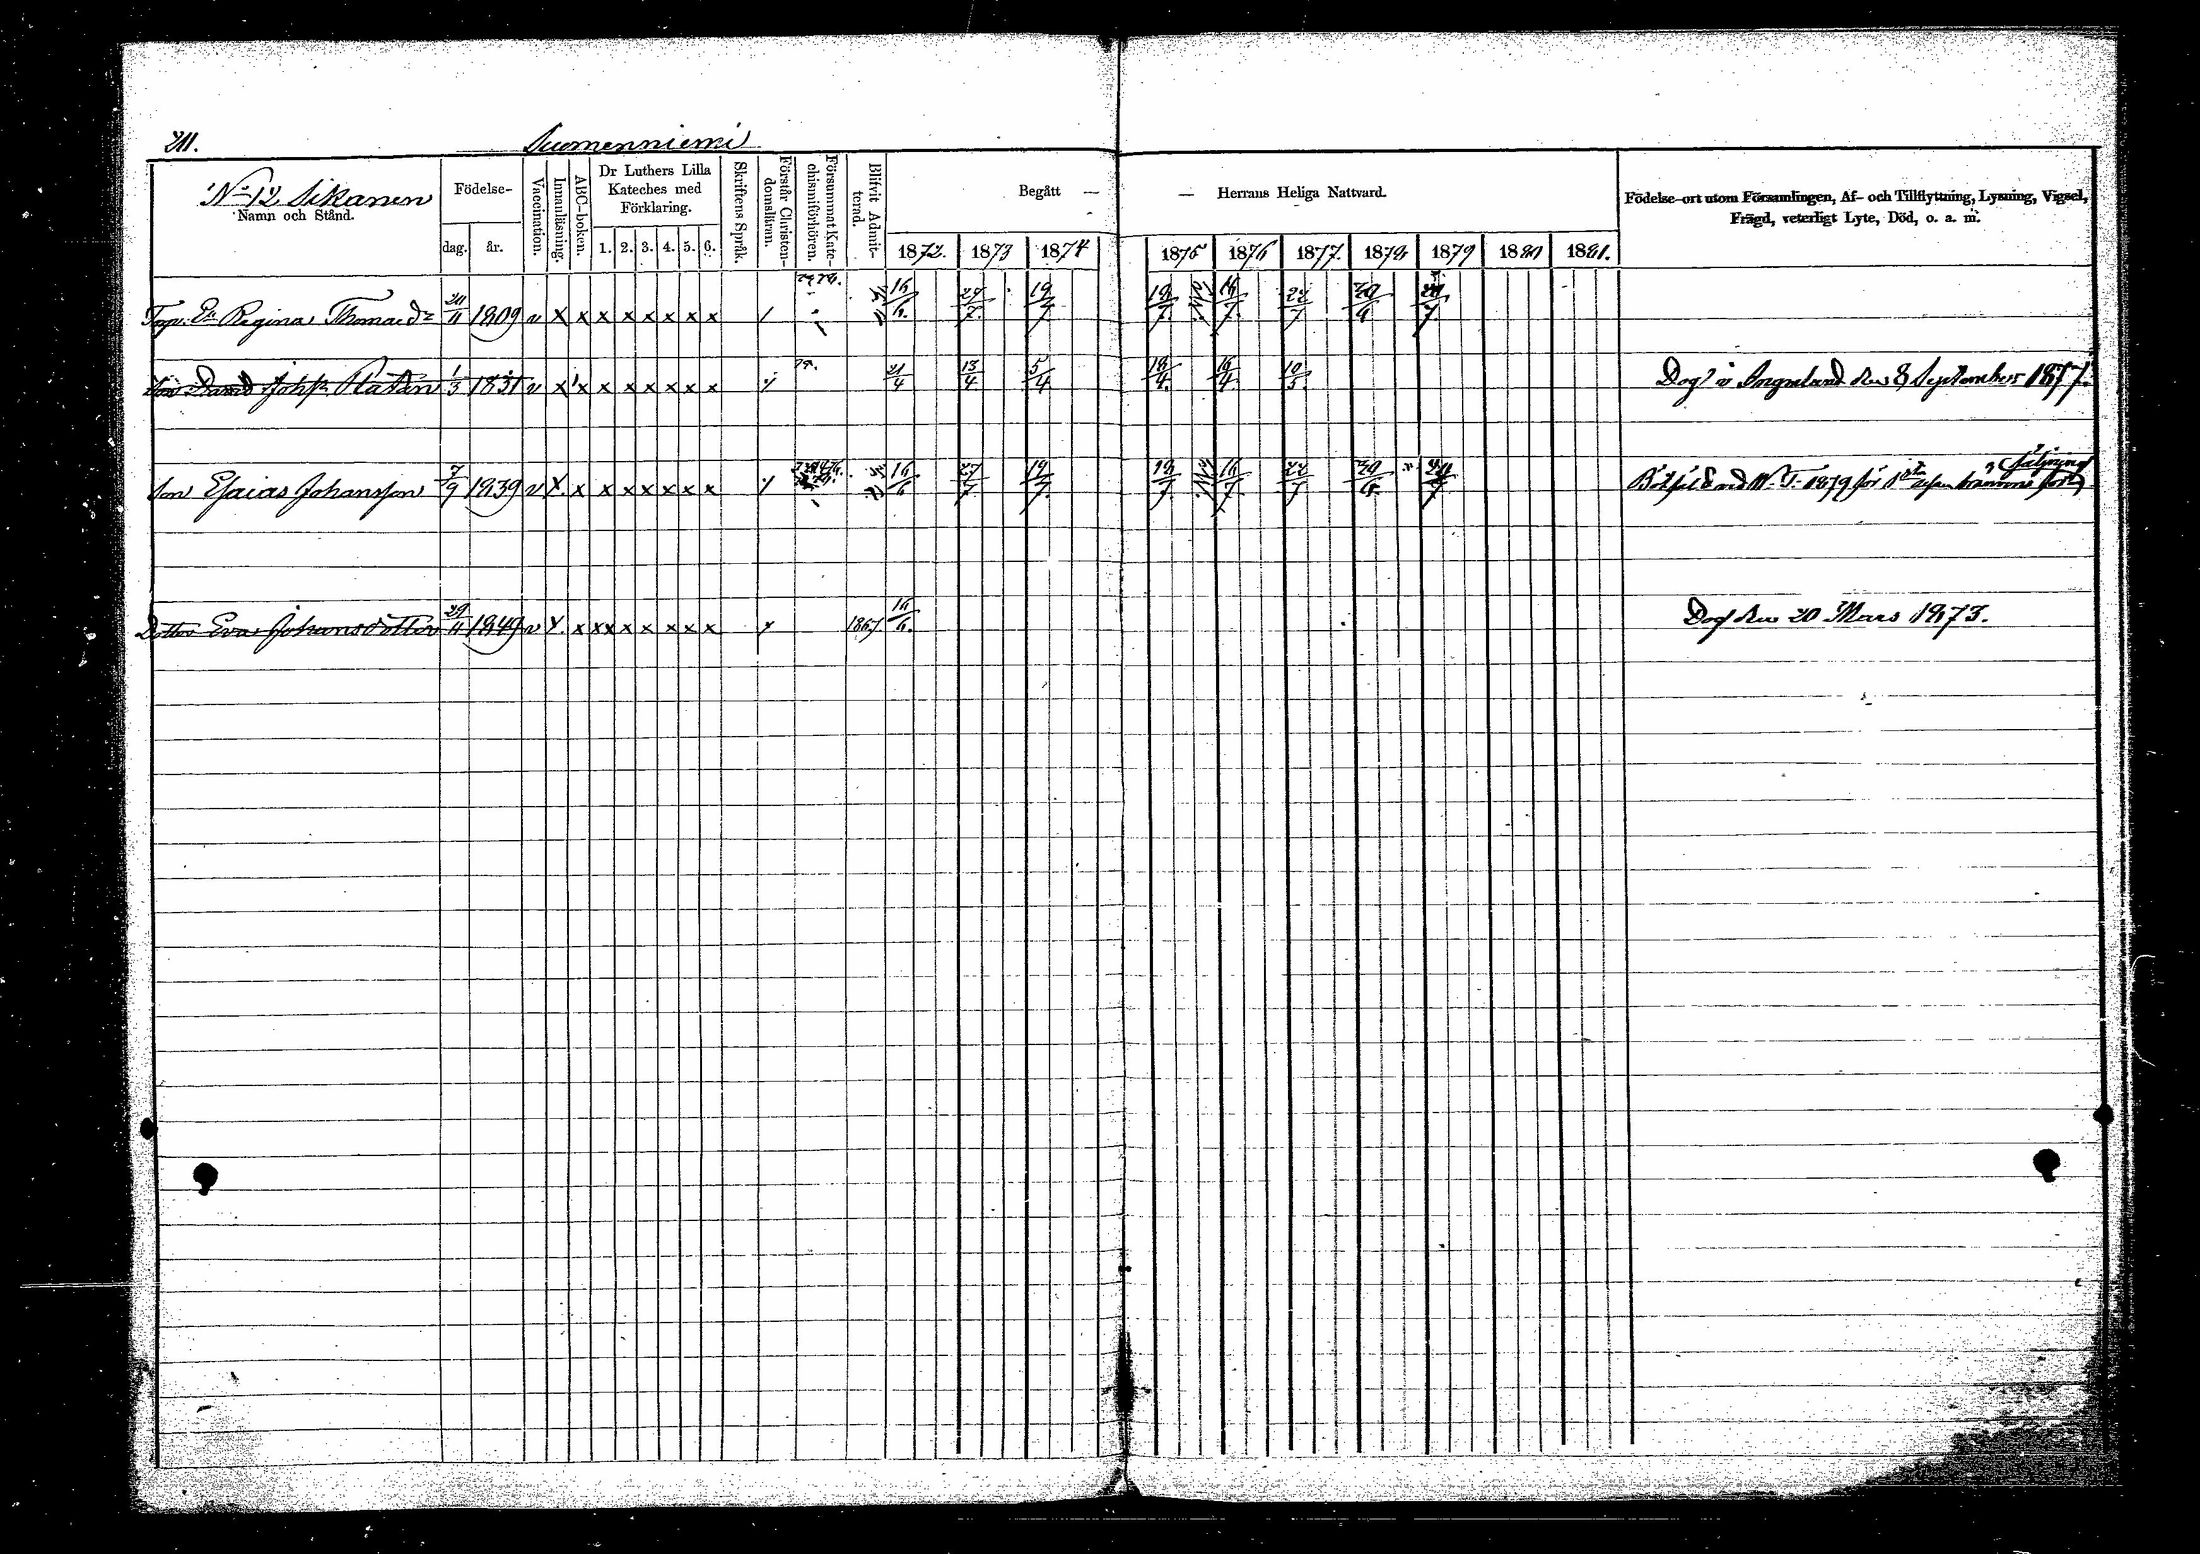 211.
Suomenniemi
No 12 Sikanen
Namn och Stånd.
Födelse-
dag. år.
Vaccination.
Innanläsning.
ABC-boken.
Dr Luthers Lilla
Kateches med
Förklaring.
1. 2. 3. 4. 5. 6.
Skriftens Språk.
Förstår Christen-
domsläran.
Försummat Kate-
chismiförhören.
Blifvit Admit-
terad.
Begått —
— Herrans Heliga Nattvard.
1872. 1873 1874 1875 1876 1877. 1878 1879 1880 1881.
Födelse-ort utom Församlingen, Af- och Tillflyttning, Lysning, Vigsel,
Frägd, veterligt Lyte, Död, o. a. m.
Regina Thomasdr 20/11 1809 v x x x x x x x x 16/6. 27/7. 19/7 18/7. 16/7. 22/7 7
Son David Johsn 1/3 1831 v x x x x x x x x 21/4 13/4 5/4 18/4. 16/4 10/5. Dog i Ingreland den 8 September 1877.
Son Esaias Johansson 7/9 1839 v x x x x x x x x 16/6 27/7 19/7 18/7 16/7. 22/7 7 1879 för
Dotter Eva Johansdotter 29/11 1849 v x x x x x x x x 1867 16/6. Dog den 20 Mars 1873.